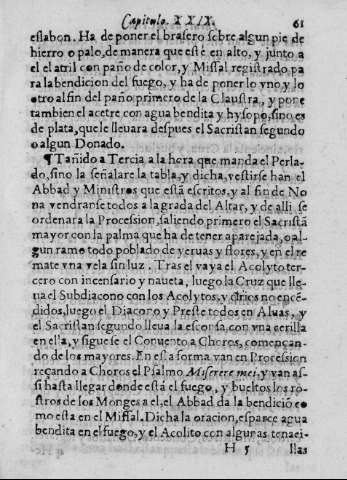 Capitulo. XXIX. 61
eslabon. Ha de poner el brasero sobre algun pie de
hierro o palo, de manera que esté en alto, y junto a
el el atril con paño de color, y Missal registrado pa
ra la bendicion del fuego, y ha de poner lo vno y lo
otro al fin del paño primero de la Claustra, y pone
tambien el acetre con agua bendita y hysopo, sino es
de plata, que le lleuara despues el Sacristan segundo
o algun Donado.
¶ Tañido a Tercia a la hora que manda el Perla-
do, sino la señalare la tabla, y dicha, vestirse han el
Abbad y Ministros que está escritos, y al fin de No
na vendranse todos a la grada del Altar, y de alli se
ordenara la Procession, saliendo primero el Sacristã
mayor con la palma que ha de tener aparejada, o al-
gun ramo todo poblado de yeruas y flores, y en el re
mate vna vela sin luz. Tras el vaya el Acolyto ter-
cero con incensario y naueta, luego la Cruz que lle-
ua el Subdiacono con los Acolytos, y ciries no encẽ-
didos, luego el Diacono y Preste todos en Aluas, y
el Sacristan segundo lleua la escorsa con vna cerilla
en ella, y siguese el Conuento a Choros, començan-
do de los mayores. En esta forma van en Procession
reçando a Choros el Psalmo Miserere mei, y van as-
si hasta llegar donde está el fuego, y bueltos los ro-
stros de los Monges a el, el Abbad da la bendiciõ co
mo esta en el Missal. Dicha la oracion, esparce agua
bendita en el fuego, y el Acolito con algunas tenaci-
H 5 llas